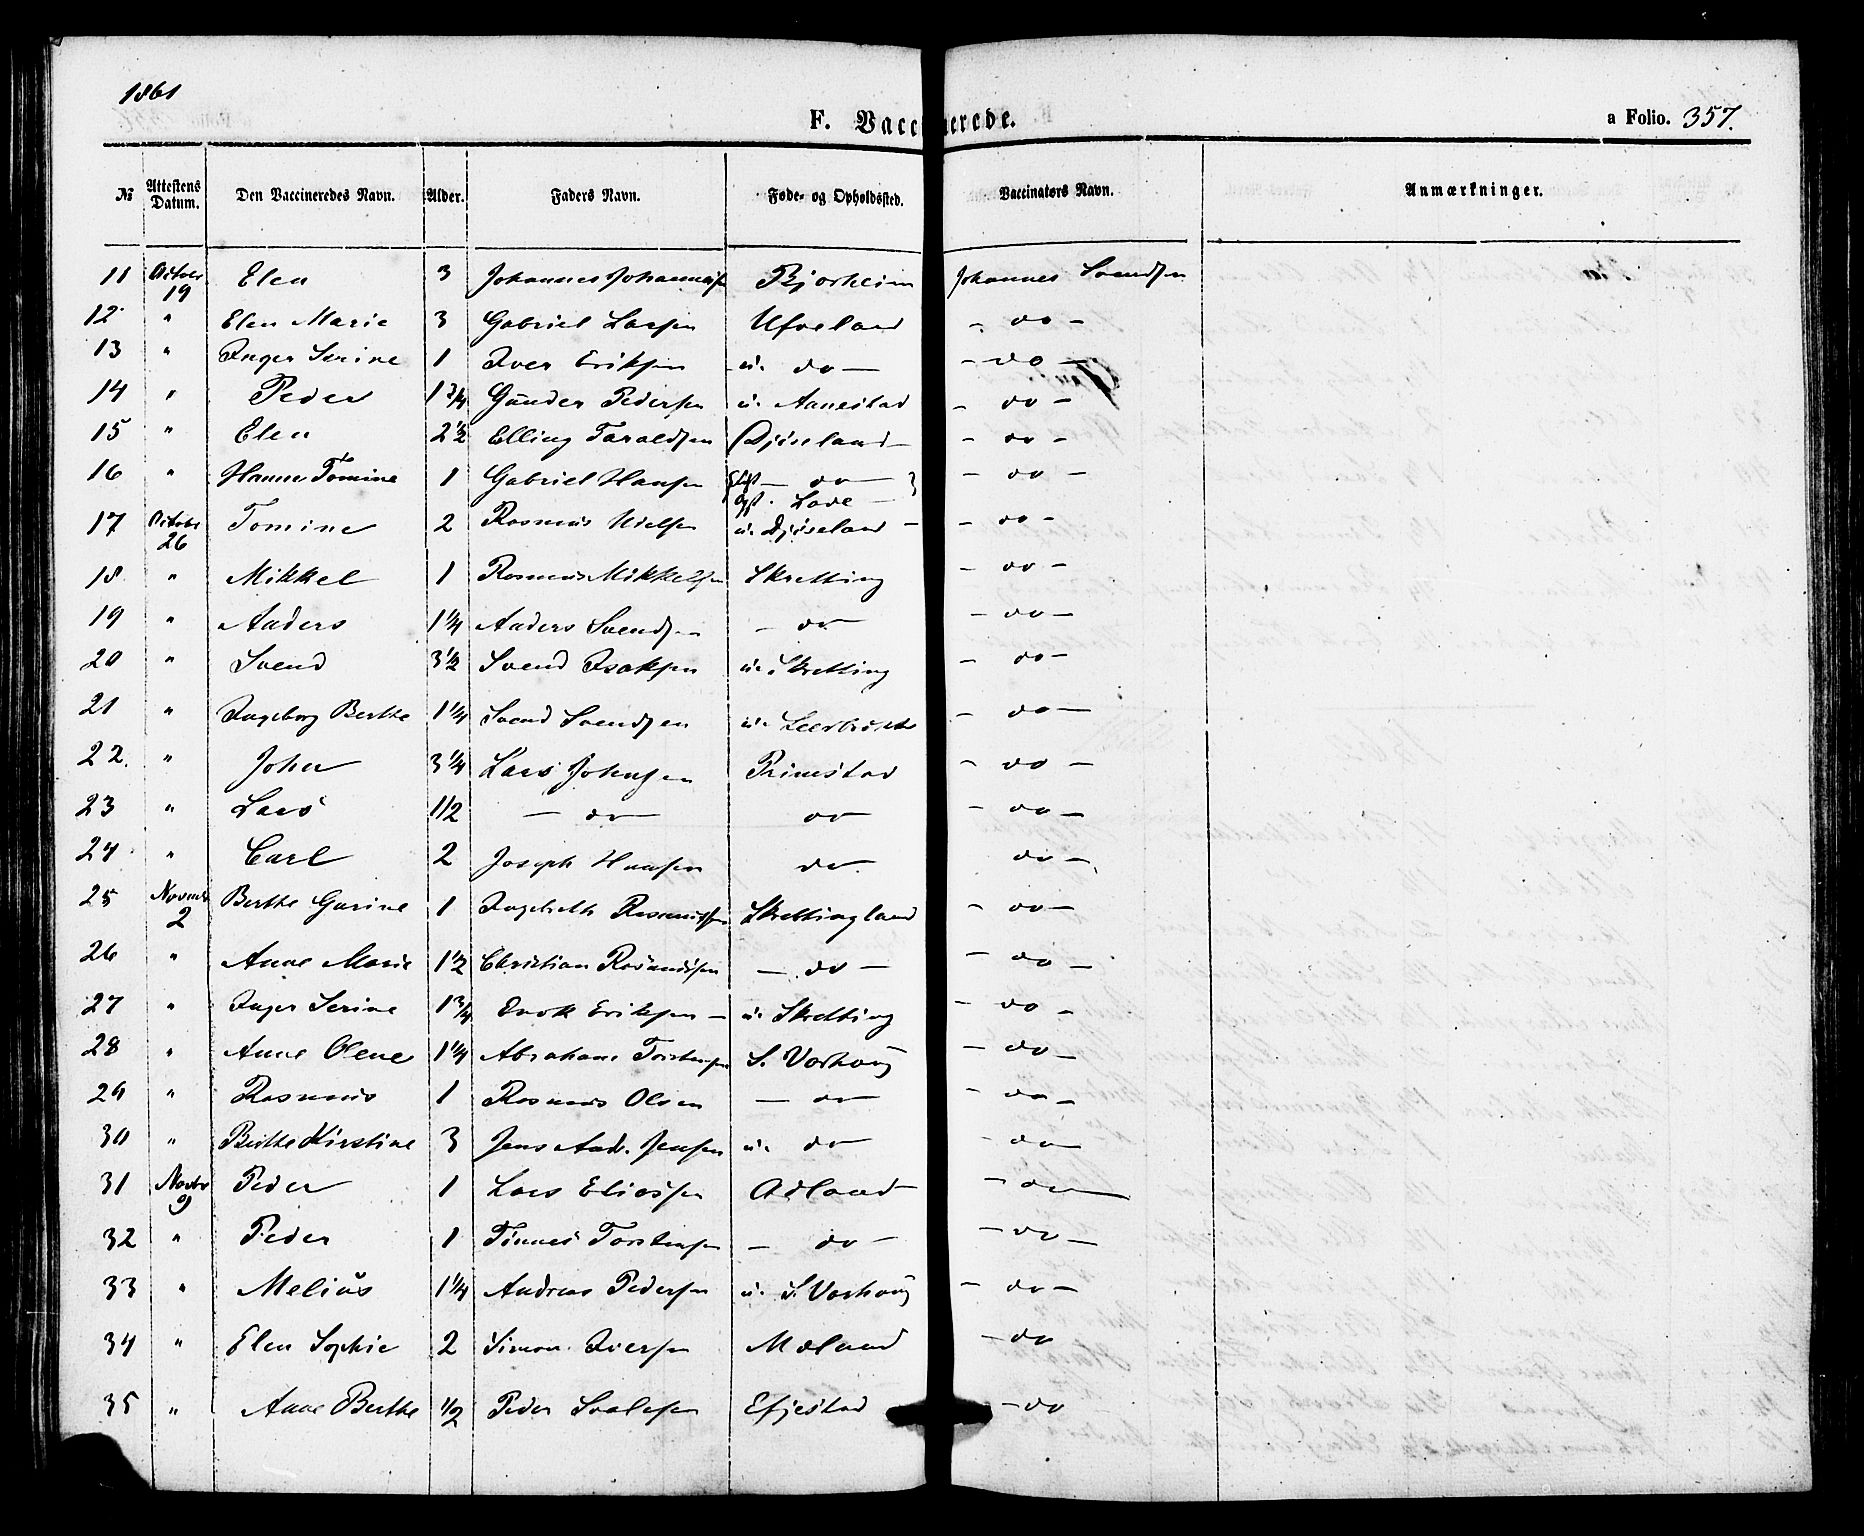 1861
F. Vaccinerede.
a Folio. 357.
№ Attestens Datum. Den Vaccineredes Navn. Alder. Faders Navn. Føde- og Opholdssted. Vaccinators Navn. Anmærkninger.
11 Octobr 19 Elen 3 Johannes Johannes Bjorheim Johannes Svendsen
12 " Elen Marie 3 Gabriel Larsen Ufveland - do -
13 " Inger Serine 1 Iver Eriksen u. do - - do -
14 " Peder 1 3/4 Gunder Pedersen u. Aanestad - do -
15 " Elen 2 1/2 Elling Taraldsen Djøseland - - do -
16 " Hanne Tomine 1 Gabriel Hansen - do - - do -
17 Octobr 26 Tomine 2 Rasmus Nielsen u. Djøseland - - do -
18 " Mikkel 1 Rasmus Mikkelsen Skretting - do -
19 " Anders 1 1/4 Anders Svendsen - do - - do -
20 " Svend 3 1/2 Svend Isaksen u. Skretting - do -
21 " Ingeborg Berthe 1 1/4 Svend Svendsen u. - do -
22. " John 3 1/4 Lars Johnsen Primestad - do -
23 " Lars 1/2 - do - do - do -
24 " Carl 2 Joseph Hansen do. do -
25 Novembr 2 Berthe Gurine 1 Ingebreth Rasmussen Skrettingland - do -
26 " Anne Marie 1 1/2 Christian - do - - do -
27 " Inger Serine 1 3/4 Enok Eriksen - u. Skretting - do -
28 " Anne Olene 1 1/4 Abraham Torstensen S. Varhoug - do -
29 " Rasmus 1 Rasmus Olsen - do - - do -
30 " Berthe Kirstine 3 Jens Andr. Jensen u. do - - do -
31 Novbr 9 Peder 1 Lars Eliassen Adland - - do -
32 " Peder 1 Tønnes Torstensen - do - - do -
33 " Melius 1 1/4 Andreas Pedersen u. S. Varhoug - do -
34 " Elen Sophie 2 Simon Iversen Mæland - do
35 " Anne Berthe 1/2 Peder Efjestad - do